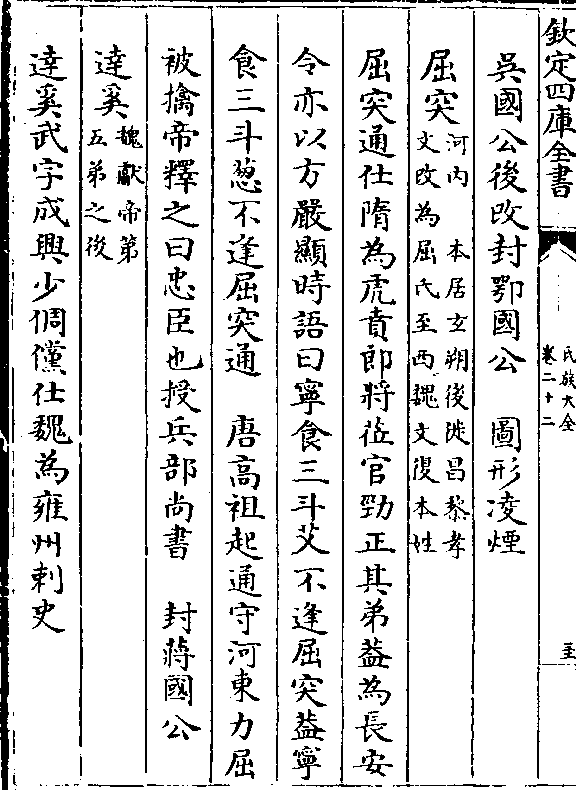 欽定四庫全書
氏族大全
卷二十二
吳國公後改封鄂國公　圖形凌煙
屈突
河内　本居玄朔後徙昌黎孝
文改為屈氏至西魏文復本姓
屈突通仕隋為虎賁郎將莅官勁正其弟葢為長安
令亦以方嚴顯時語曰寧食三斗艾不逢屈突葢寧
食三斗葱不逢屈突通　唐高祖起通守河東力屈
被擒帝釋之曰忠臣也授兵部尚書　封蔣國公
達奚
魏獻帝第
五弟之後
達奚武字成興少倜儻仕魏為雍州刺史